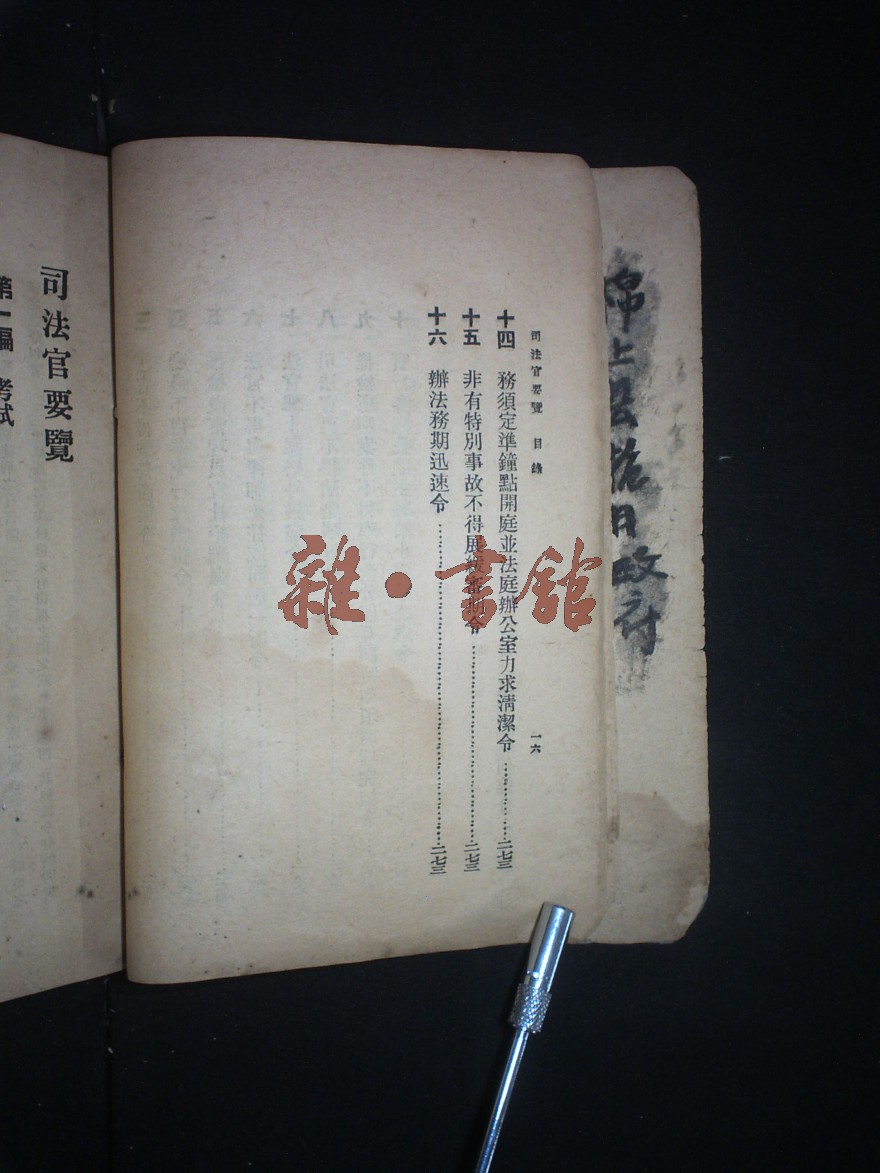 司法官要覽 目錄 一六
十四 務須定準鐘點開庭並法庭辦公室力求清潔令 二七三
十五 非有特別事故不得展緩審判令 二七三
十六 辦法務期迅速令 二七三
司法官要覽
第一編 考試
雜·書舘
政府